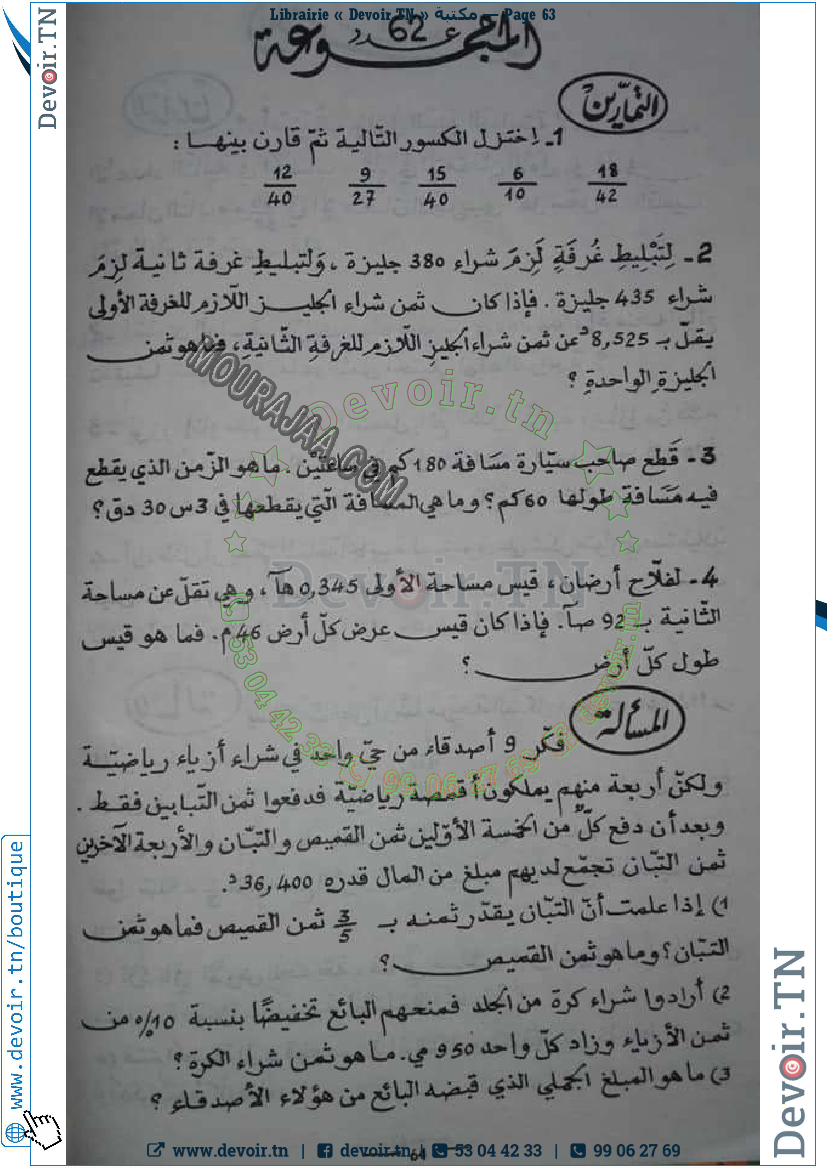 Librairie « Devoir.TN » مكتبة — Page 63
Devoir.TN
المجموعة عدد 62
التمارين
1- اختزل الكسور التّالية ثمّ قارن بينها :
18/42 6/10 15/40 9/27 12/40
2- لِتَبْليطِ غُرفَةٍ لَزِمَ شراء 380 جليزة ، وَلتبليطِ غرفة ثانية لزِمَ
شراء 435 جليزة . فإذا كان ثمن شراء الجليز اللّازم للغرفة الأولى
يقلّ بـ 8,525د عن ثمن شراء الجليزِ اللّازم للغرفةِ الثّانيةِ، فما هو ثمن
الجليزةِ الواحدةِ ؟
3- قَطع صاحب سيّارة مسَافة 180 كم في ساعتَيْن . ما هو الزّمن الذي يقطع
فيه مَسَافة طولها 60 كم ؟ وما هي المسافة الّتي يقطعها في 3س 30 دق ؟
4- لفلّاح أرضان ، قيس مساحة الأولى 0,345 هآ ، وهي تقلّ عن مساحة
الثّانية بـ 92 صآ. فإذا كان قيس عرض كلّ أرض 46 م. فما هو قيس
طول كلّ أرض ؟
المسألة
فكّر 9 أصدقاء من حيّ واحد في شراء أزياء رياضيّة
ولكنّ أربعة منهم يملكون أقمصة رياضيّة فدفعوا ثمن التّبابين فقط .
وبعد أن دفع كلٌّ من الخمسة الأوّلين ثمن القميص والتبّان والأربعة الآخرين
ثمن التبّان تجمّع لديهم مبلغ من المال قدره 36,400 د.
1) إذا علمت أنّ التبّان يقدّر ثمنه بـ 3/5 ثمن القميص فما هو ثمن
التبّان ؟ وما هو ثمن القميص ؟
2) أرادوا شراء كرة من الجلد فمنحهم البائع تخفيضًا بنسبة 10% من
ثمن الأزياء وزاد كلّ واحد 950 مي. ما هو ثمن شراء الكرة ؟
3) ما هو المبلغ الجملي الذي قبضه البائع من هؤلاء الأصدقاء ؟
MOURAJAA.COM
Devoir.tn
Devoir.TN
53 04 42 33 99 06 27 69 devoir.tn
www.devoir.tn/boutique
Devoir.TN
64
www.devoir.tn | devoir.tn | 53 04 42 33 | 99 06 27 69